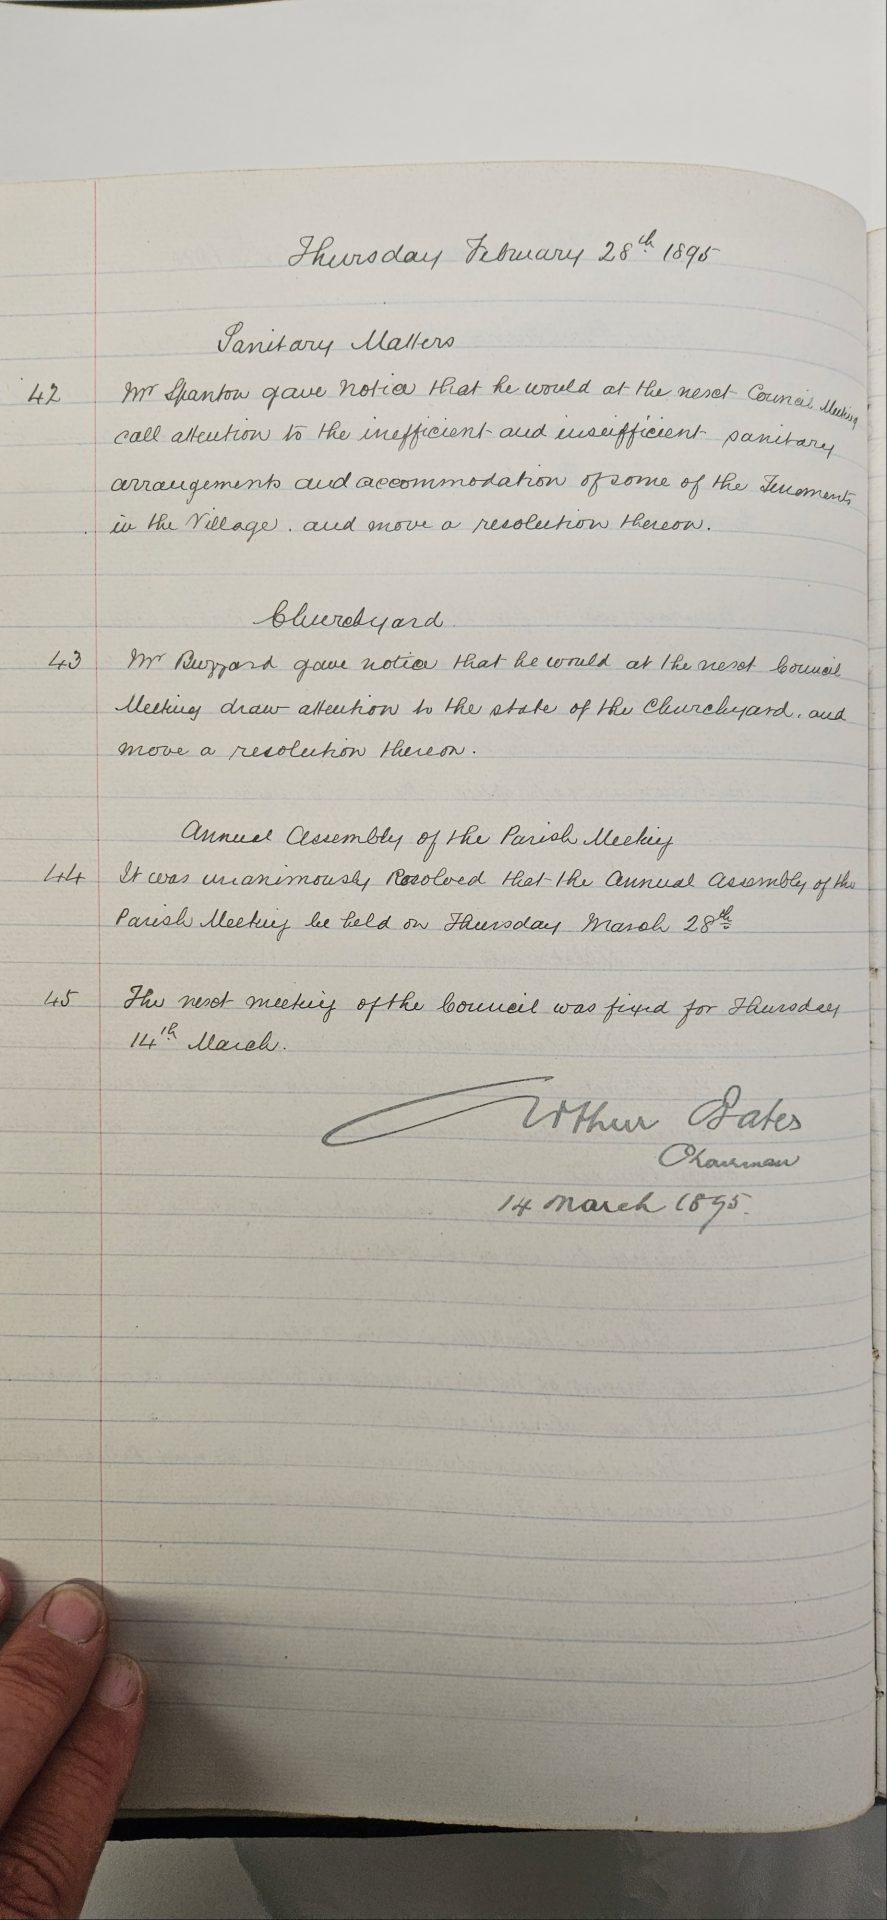 Thursday February 28th 1895
Sanitary Matters
42 Mr Spanton gave notice that he would at the next Council Meeting
call attention to the inefficient and insufficient sanitary
arrangements and accommodation of some of the Tenements
in the Village. and move a resolution thereon.
Churchyard.
43 Mr Buzzard gave notice that he would at the next Council
Meeting draw attention to the state of the Churchyard. and
move a resolution thereon.
Annual Assembly of the Parish Meeting
44 It was unanimously Resolved that the Annual Assembly of the
Parish Meeting be held on Thursday March 28th
45 The next meeting of the Council was fixed for Thursday
14th March.
Arthur Bates
Chairman
14 March 1895.